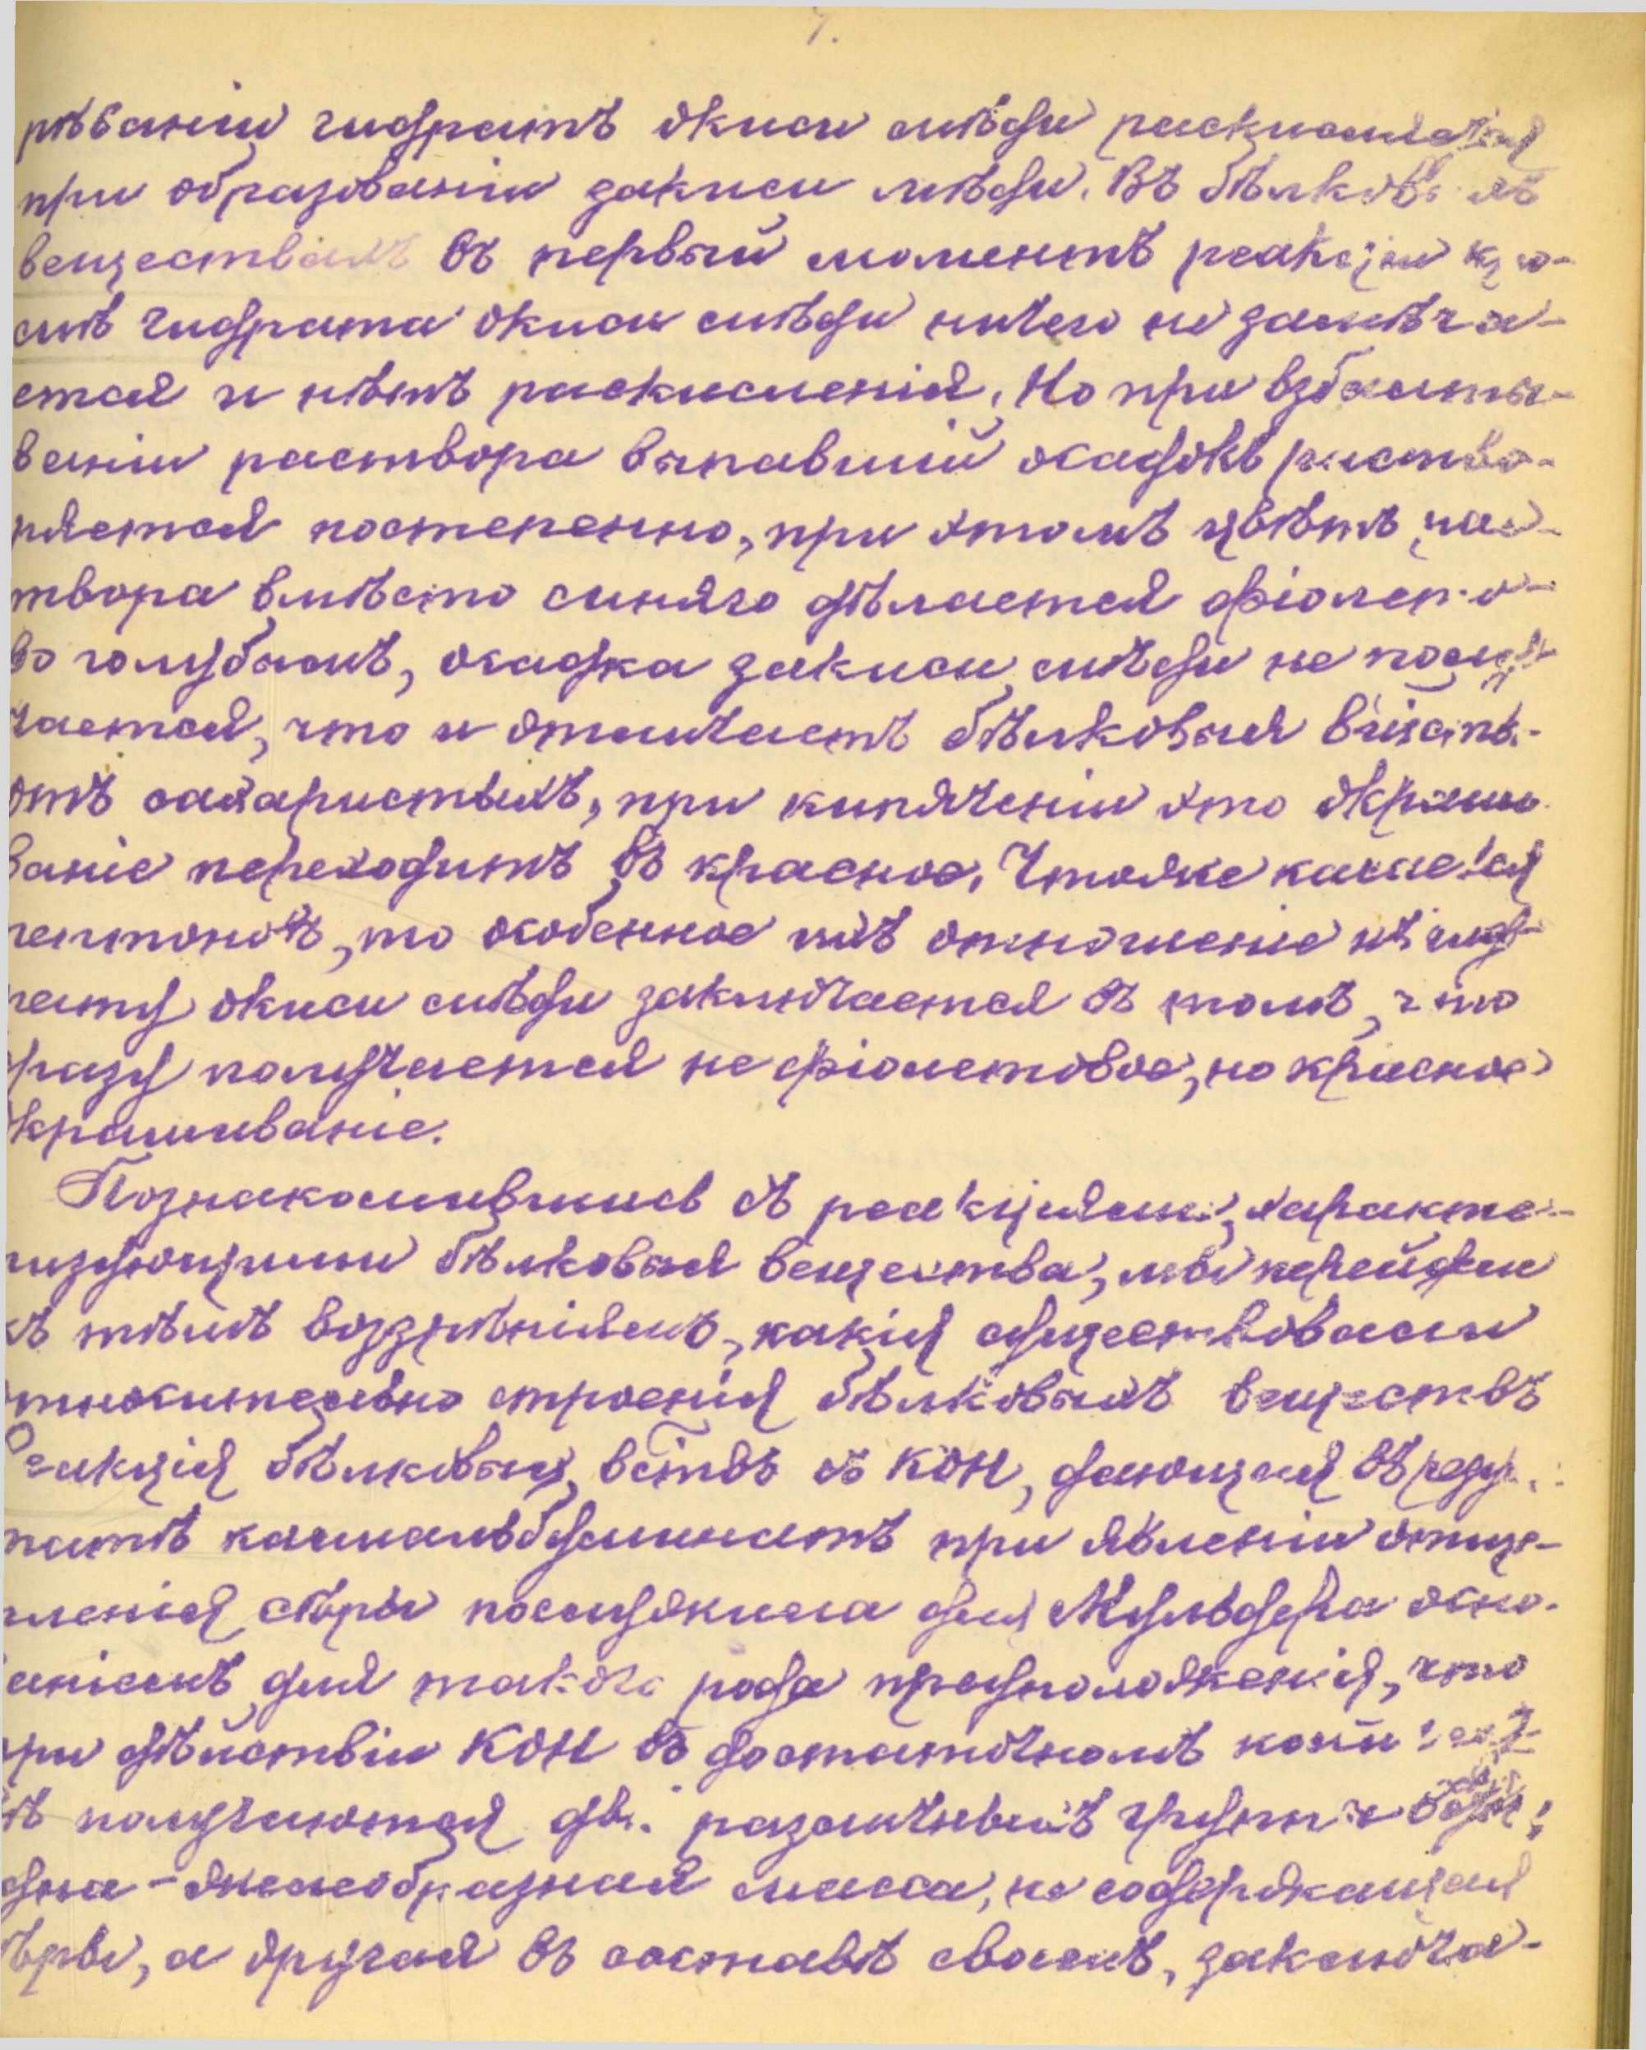 7.
рѣваніи гидратъ окиси мѣди раскисляется
при образованіи закиси мѣди. Въ бѣлковыхъ
веществахъ въ первый моментъ реакціи кро-
мѣ гидрата окиси мѣди ничего не замѣча-
ется и нѣтъ раскисленія. Но при взбалты-
ваніи раствора выпавшій осадокъ раство-
ряется постепенно, при этомъ цвѣтъ рас-
твора вмѣсто синяго дѣлается фіолето-
во голубымъ, осадка закиси мѣди не полу-
чается, что и отличаетъ бѣлковыя
отъ сахаристыхъ, при кипяченіи это окраши
ваніе переходитъ въ красное. Чтоже касается
пептоновъ, то особенное ихъ отношеніе къ гид-
рату окиси мѣди заключается въ томъ, что
сразу получается не фіолетовое, но красное
окрашиваніе.
Познакомившись съ реакціями, характе-
ризующими бѣлковыя вещества, мы перейдемъ
къ тѣмъ воззрѣніямъ, какія существовали
относительно строенія бѣлковыхъ веществъ
Реакція бѣлковыхъ вствъ съ КОН, дающая въ резу
татѣ калиальбуминатъ при явленіи отще-
пленія сѣры послужила для Мульдера осно-
ваніемъ для такого рода предположенія, что
при дѣйствіи КОН въ достаточномъ количест-
вѣ получаются двѣ различныхъ группы
одна - желеобразная масса, не содержащая
сѣры, а другая въ составѣ своемъ, заключа-